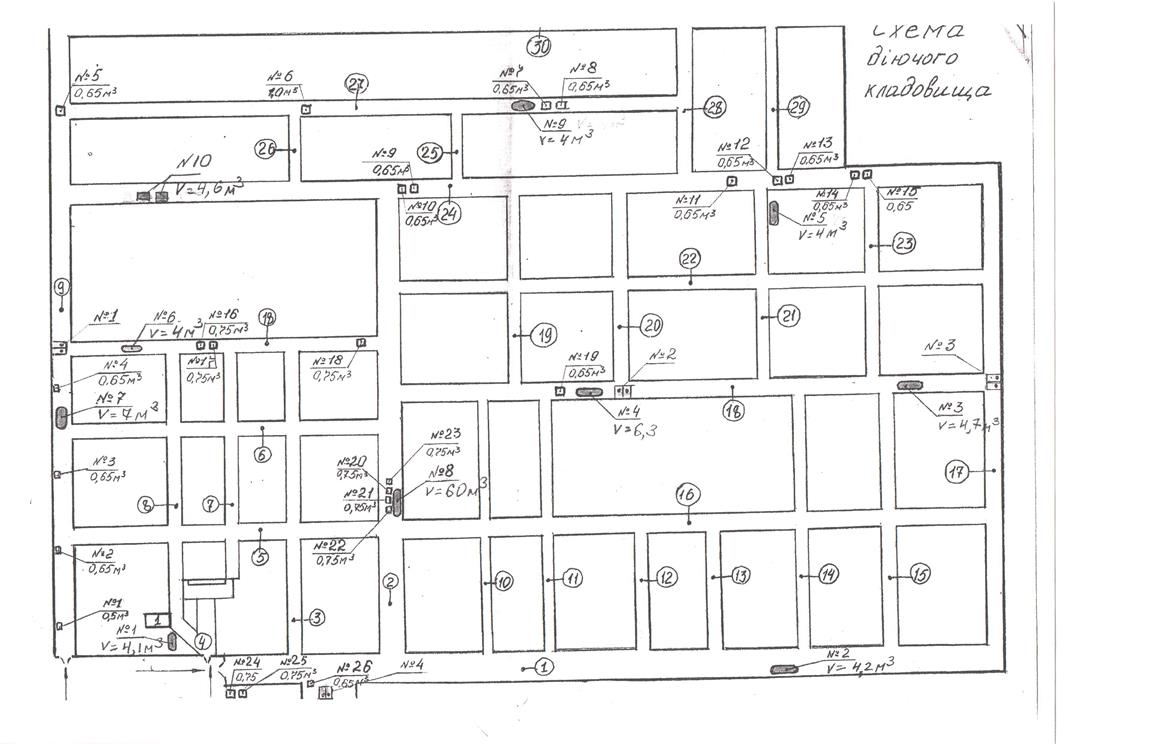 Схема
діючого
кладовища
30
№5
0,65м³
№6
27
№7
0,65м³
№8
0,65м³
№9
V=4м³
28
29
26
№10
V=4,6м³
№9
0,65м³
25
№10
0,65м³
24
№12
0,65м³
№13
0,65м³
№11
0,65м³
№14
0,65м³
№15
0,65
№5
V=4м³
23
22
9
№1
№6
V=4м³
№16
0,75м³
19
20
21
№4
0,65м³
№17
0,75м³
№18
0,75м³
№19
0,65м³
№2
№3
№7
V=7м³
№4
V=6,3
18
№3
V=4,7м³
6
№23
0,75м³
№3
0,65м³
№20
0,75м³
№8
V=60м³
17
8
7
№21
0,75м³
16
№22
0,75м³
№2
0,65м³
5
2
10
11
12
13
14
15
№1
0,5м³
1
3
4
№1
V=4,1м³
№24
0,75
№25
0,75м³
№26
0,65м³
№4
1
№2
V=4,2м³